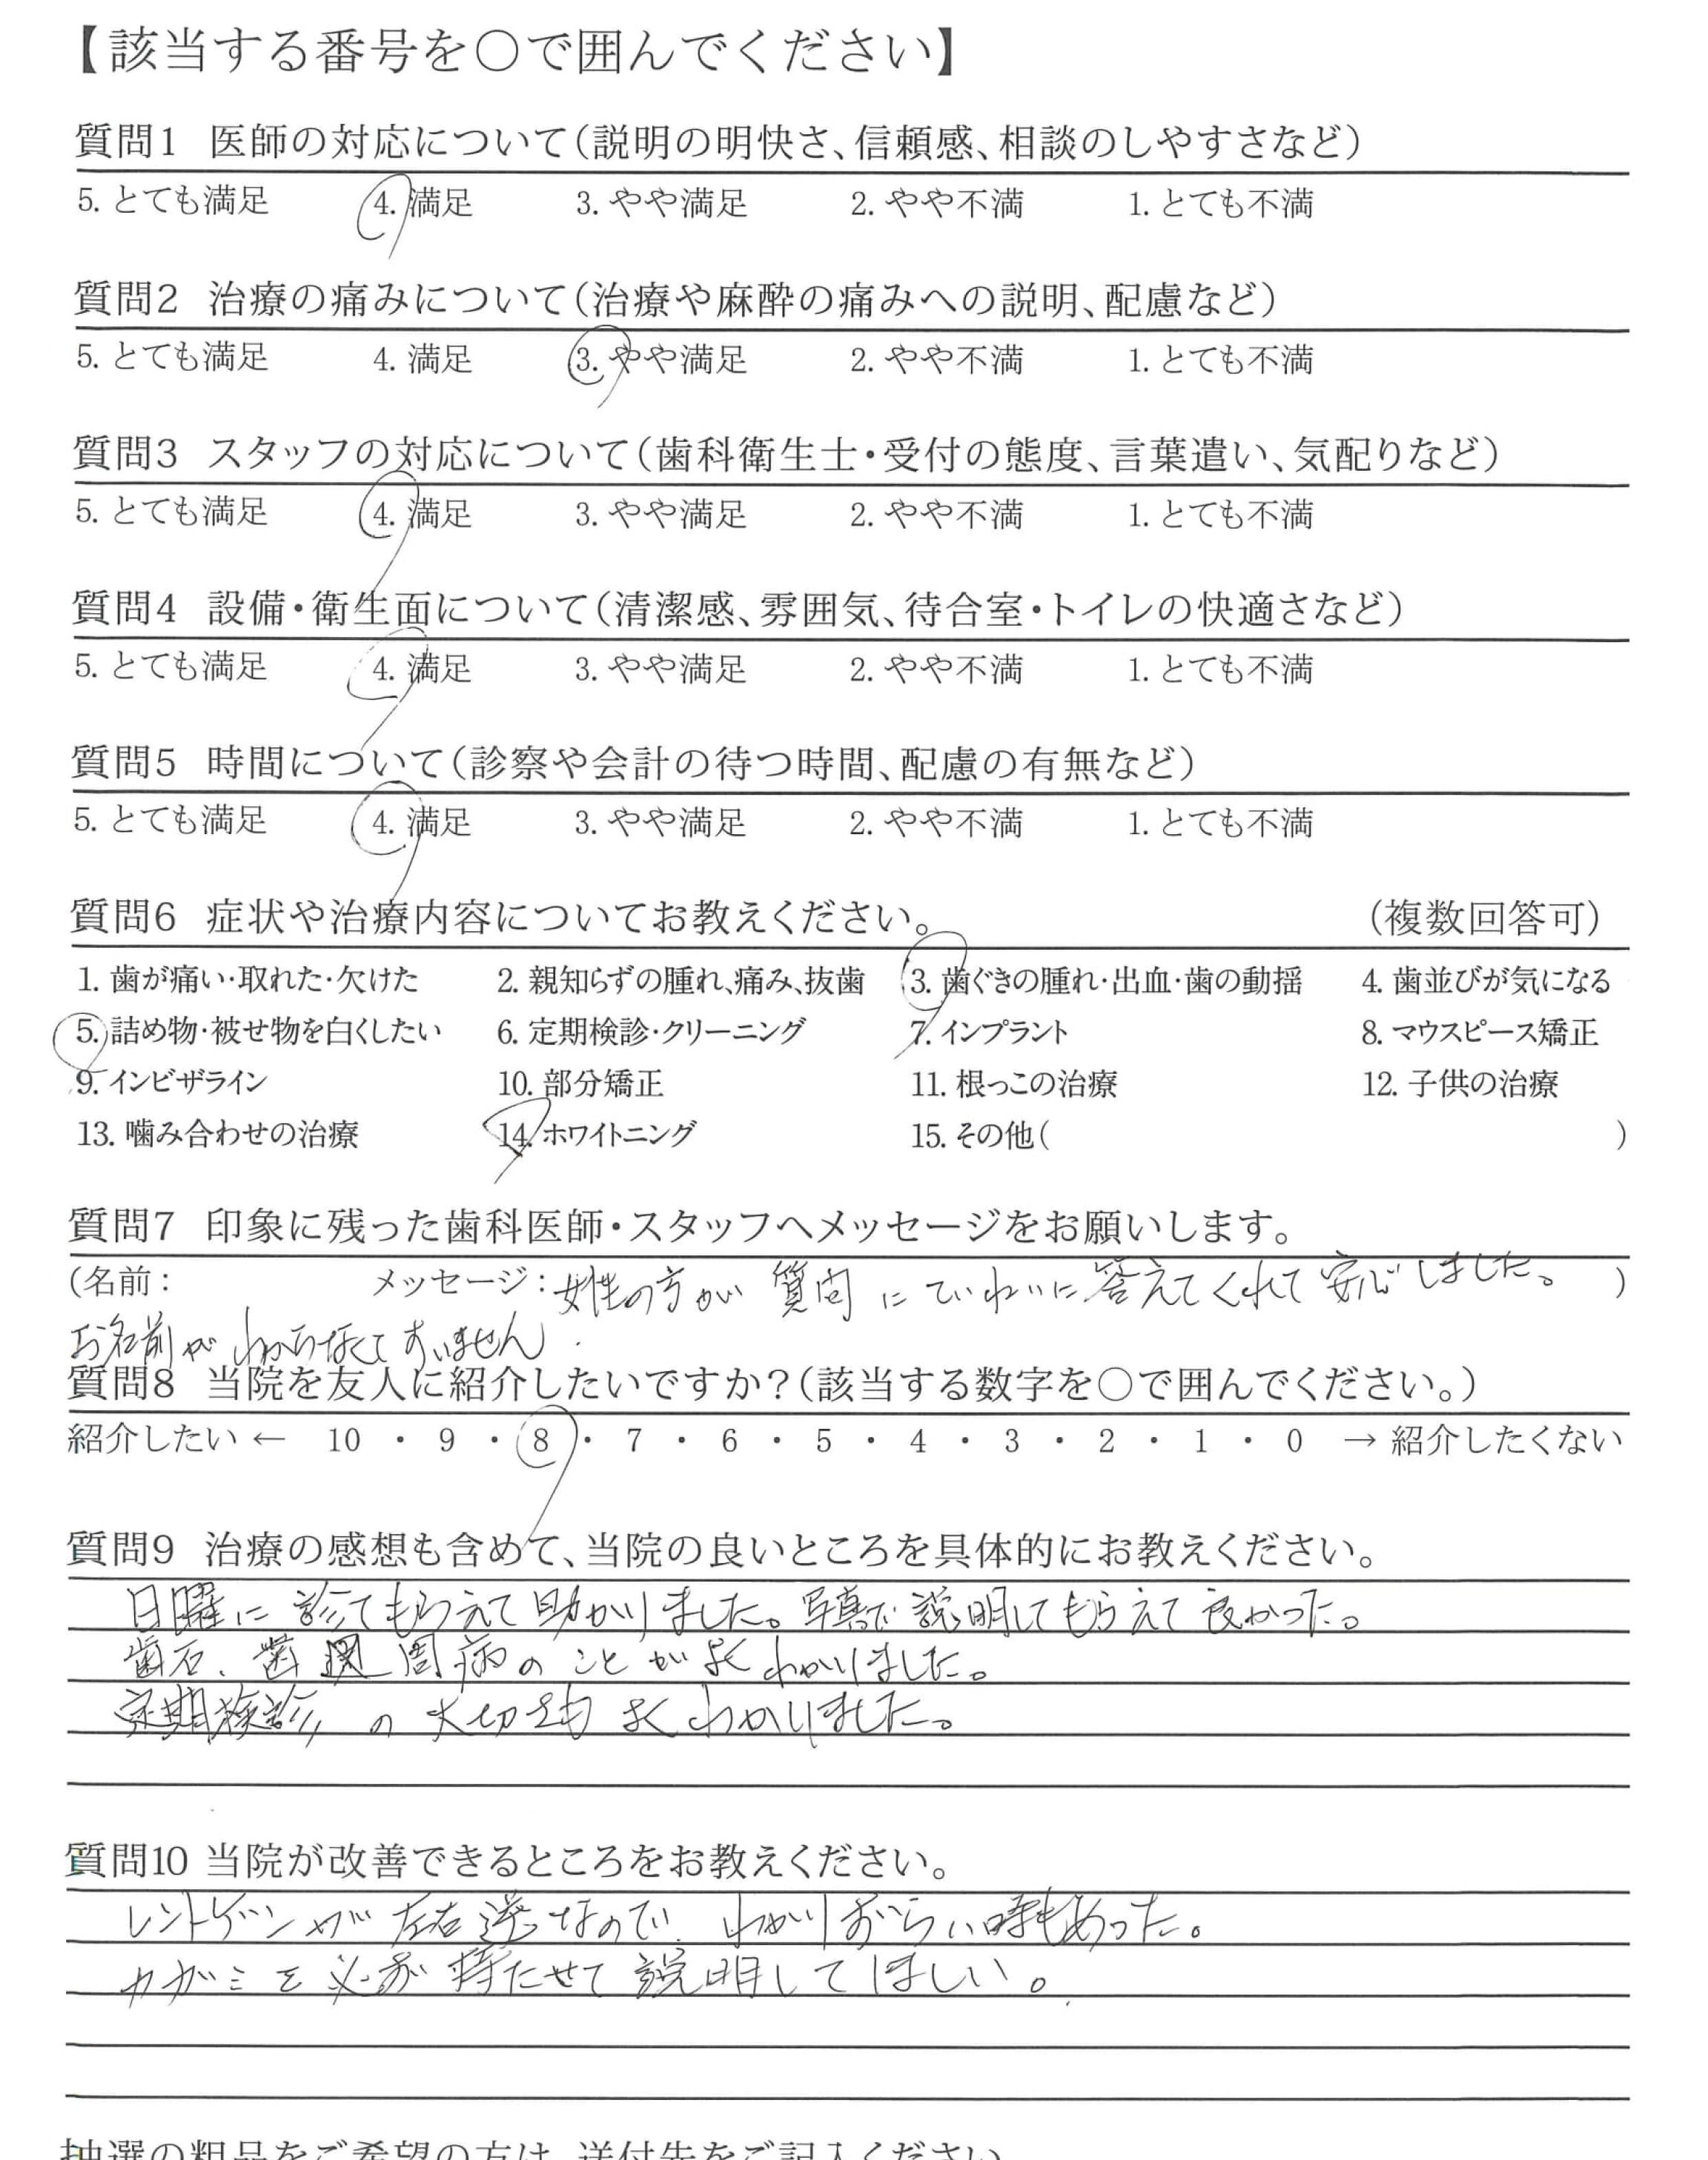 【該当する番号を○で囲んでください】
質問1 医師の対応について(説明の明快さ、信頼感、相談のしやすさなど)
5. とても満足 4. 満足 3. やや満足 2. やや不満 1. とても不満
質問2 治療の痛みについて(治療や麻酔の痛みへの説明、配慮など)
5. とても満足 4. 満足 3. やや満足 2. やや不満 1. とても不満
質問3 スタッフの対応について(歯科衛生士・受付の態度、言葉遣い、気配りなど)
5. とても満足 4. 満足 3. やや満足 2. やや不満 1. とても不満
質問4 設備・衛生面について(清潔感、雰囲気、待合室・トイレの快適さなど)
5. とても満足 4. 満足 3. やや満足 2. やや不満 1. とても不満
質問5 時間について(診察や会計の待つ時間、配慮の有無など)
5. とても満足 4. 満足 3. やや満足 2. やや不満 1. とても不満
質問6 症状や治療内容についてお教えください。 (複数回答可)
1. 歯が痛い・取れた・欠けた 2. 親知らずの腫れ、痛み、抜歯 3. 歯ぐきの腫れ・出血・歯の動揺 4. 歯並びが気になる
5. 詰め物・被せ物を白くしたい 6. 定期検診・クリーニング 7. インプラント 8. マウスピース矯正
9. インビザライン 10. 部分矯正 11. 根っこの治療 12. 子供の治療
13. 噛み合わせの治療 14. ホワイトニング 15. その他( )
質問7 印象に残った歯科医師・スタッフへメッセージをお願いします。
(名前: メッセージ: 女性の方が 質問 に ていねいに 答えてくれて 安心しました。 )
お名前が わからなくて すいません.
質問8 当院を友人に紹介したいですか?(該当する数字を○で囲んでください。)
紹介したい ← 10 ・ 9 ・ 8 ・ 7 ・ 6 ・ 5 ・ 4 ・ 3 ・ 2 ・ 1 ・ 0 → 紹介したくない
質問9 治療の感想も含めて、当院の良いところを具体的にお教えください。
日曜に 診てもらえて 助かりました。写真で 説明してもらえて 良かった。
歯石、歯周病の ことが よく わかりました。
定期検診 の 大切さも よく わかりました。
質問10 当院が改善できるところをお教えください。
レントゲンが 左右逆なので、わかりづらい時もあった。
カガミを 必ず 持たせて 説明して ほしい。
抽選の粗品をご希望の方は、送付先をご記入ください